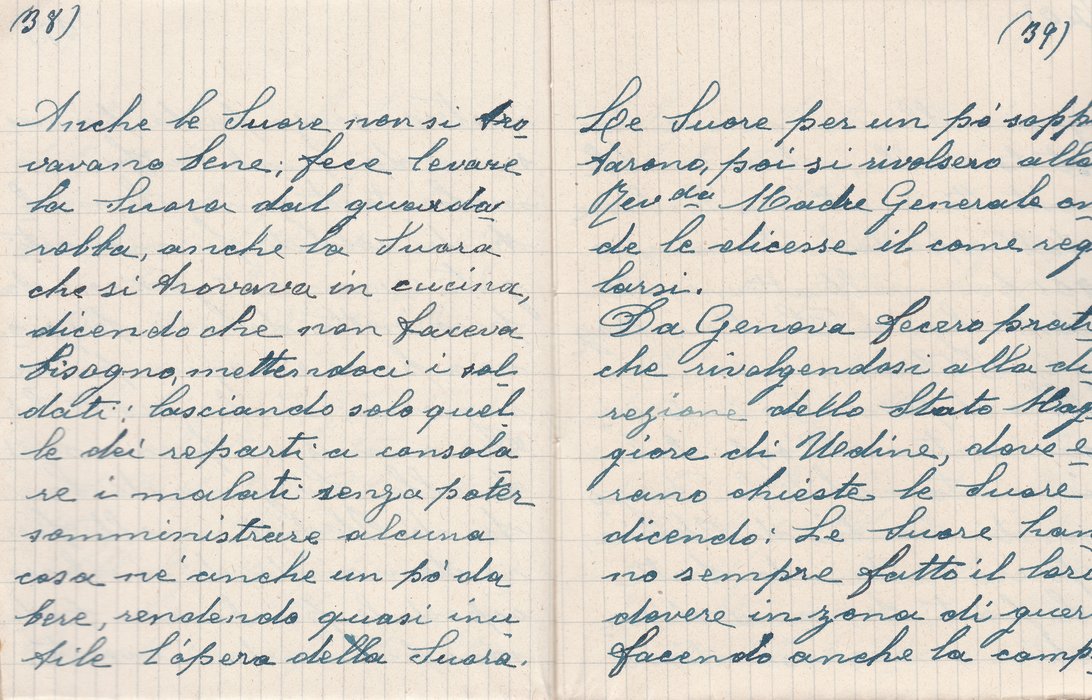 (38)
Anche le Suore non si tro
vavano bene; fece levare
la Suora dal guarda
robba, anche la Suora
che si trovava in cucina,
dicendo che non faceva
bisogno, mettendoci i sol
dati: lasciando solo quel
le dei reparti a consola
re i malati senza poter
somministrare alcuna
cosa né anche un pó da
bere, rendendo quasi inu
tile l'ópera della Suora.
(39)
Le Suore per un pó sopp
tarono, poi si rivolsero alla
Revda Madre Generale o
de le dicesse il come reg
larsi.
Da Genova fecero prat
che rivolgendosi alla di
rezione dello Stato Mag
giore di Udine, dove e
rano chieste le Suore
dicendo: Le Suore han
no sempre fatto il loro
dovere in zona di guer
facendo anche la camp